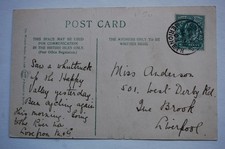 POST CARD
THIS SPACE MAY BE USED
FOR COMMUNICATION
IN THE BRITISH ISLES ONLY.
(Post Office Regulations.)
THE ADDRESS ONLY TO BE
WRITTEN HERE.
Saw a whitturk
of the Happy
Valley yesterday
Been cycling again
this morning. Going
Love from
Miss Anderson
501. West Derby Rd.
The Brook
Liverpool